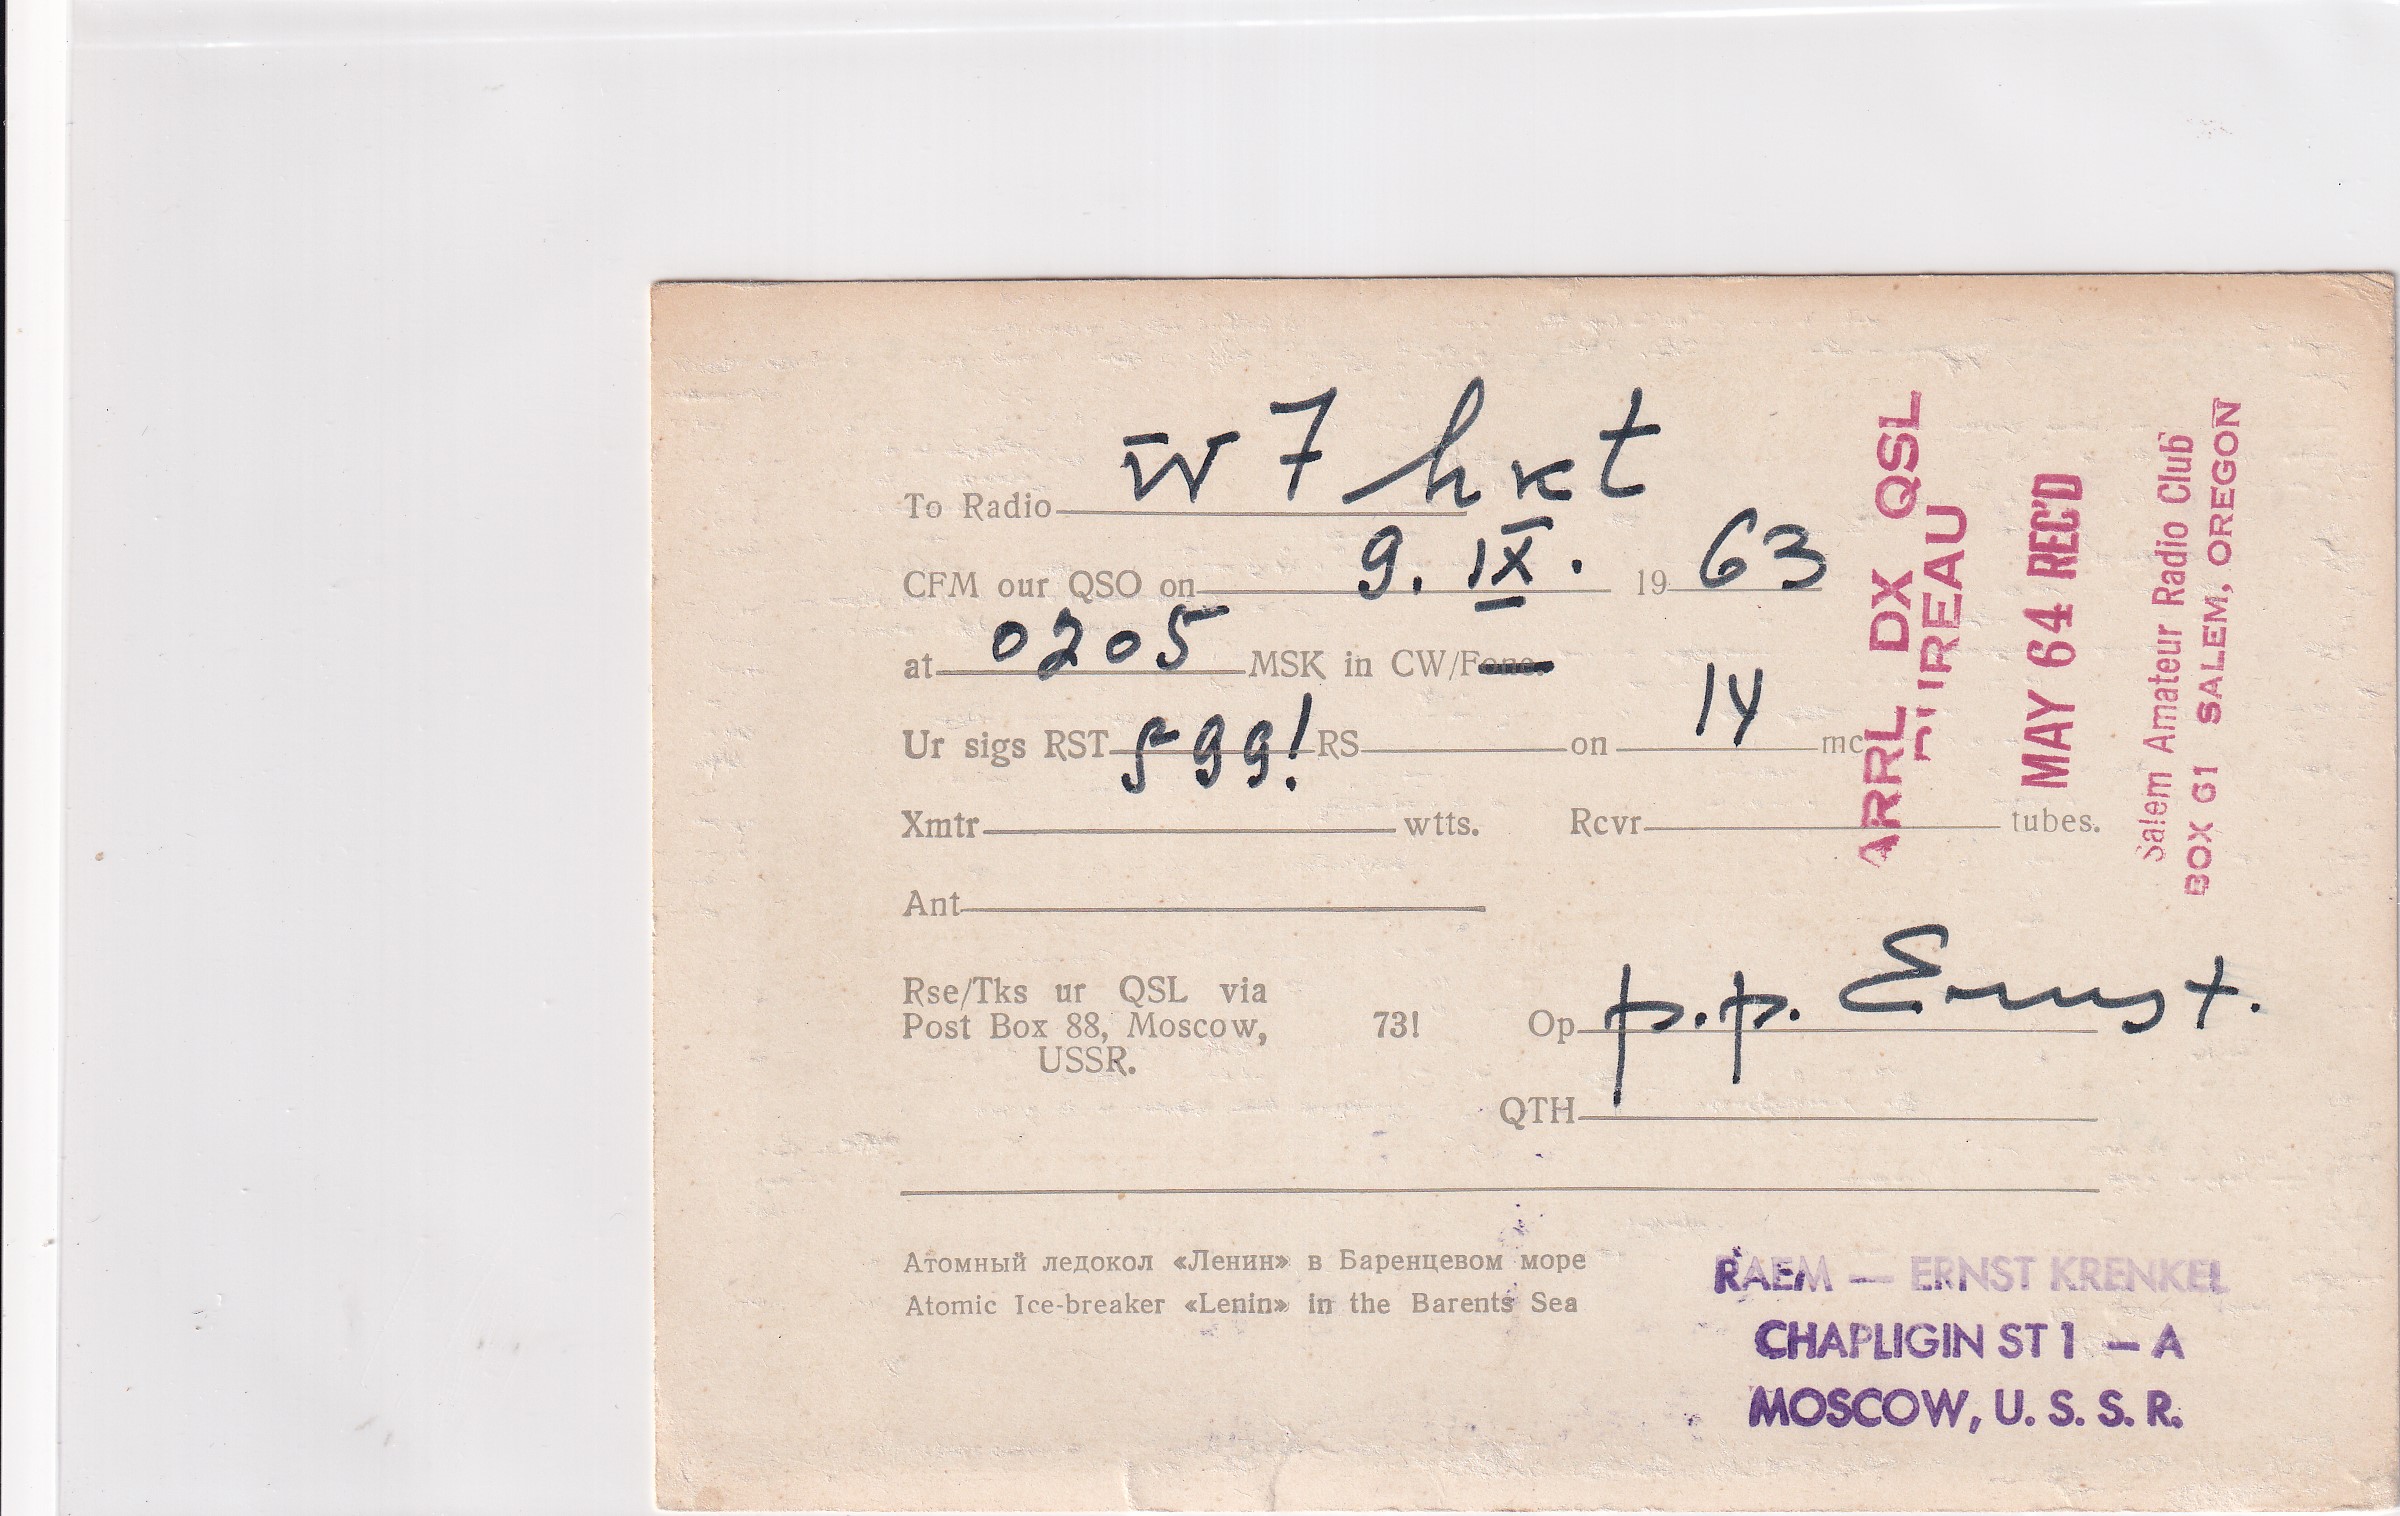 To Radio W7hkt
CFM our QSO on 9. IX. 1963
at 0205 MSK in CW/Fone.
Ur sigs RST 599! RS on 14 mc
Xmtr wtts. Rcvr tubes.
Ant
Rse/Tks ur QSL via
Post Box 88, Moscow,
USSR.
73! Op p.p. Ernst.
QTH
Атомный ледокол «Ленин» в Баренцевом море
Atomic Ice-breaker «Lenin» in the Barents Sea
RAEM — ERNST KRENKEL
CHAPLIGIN ST 1 — A
MOSCOW, U. S. S. R.
ARRL DX QSL
BUREAU
MAY 64 REC'D
Salem Amateur Radio Club
BOX 61 SALEM, OREGON